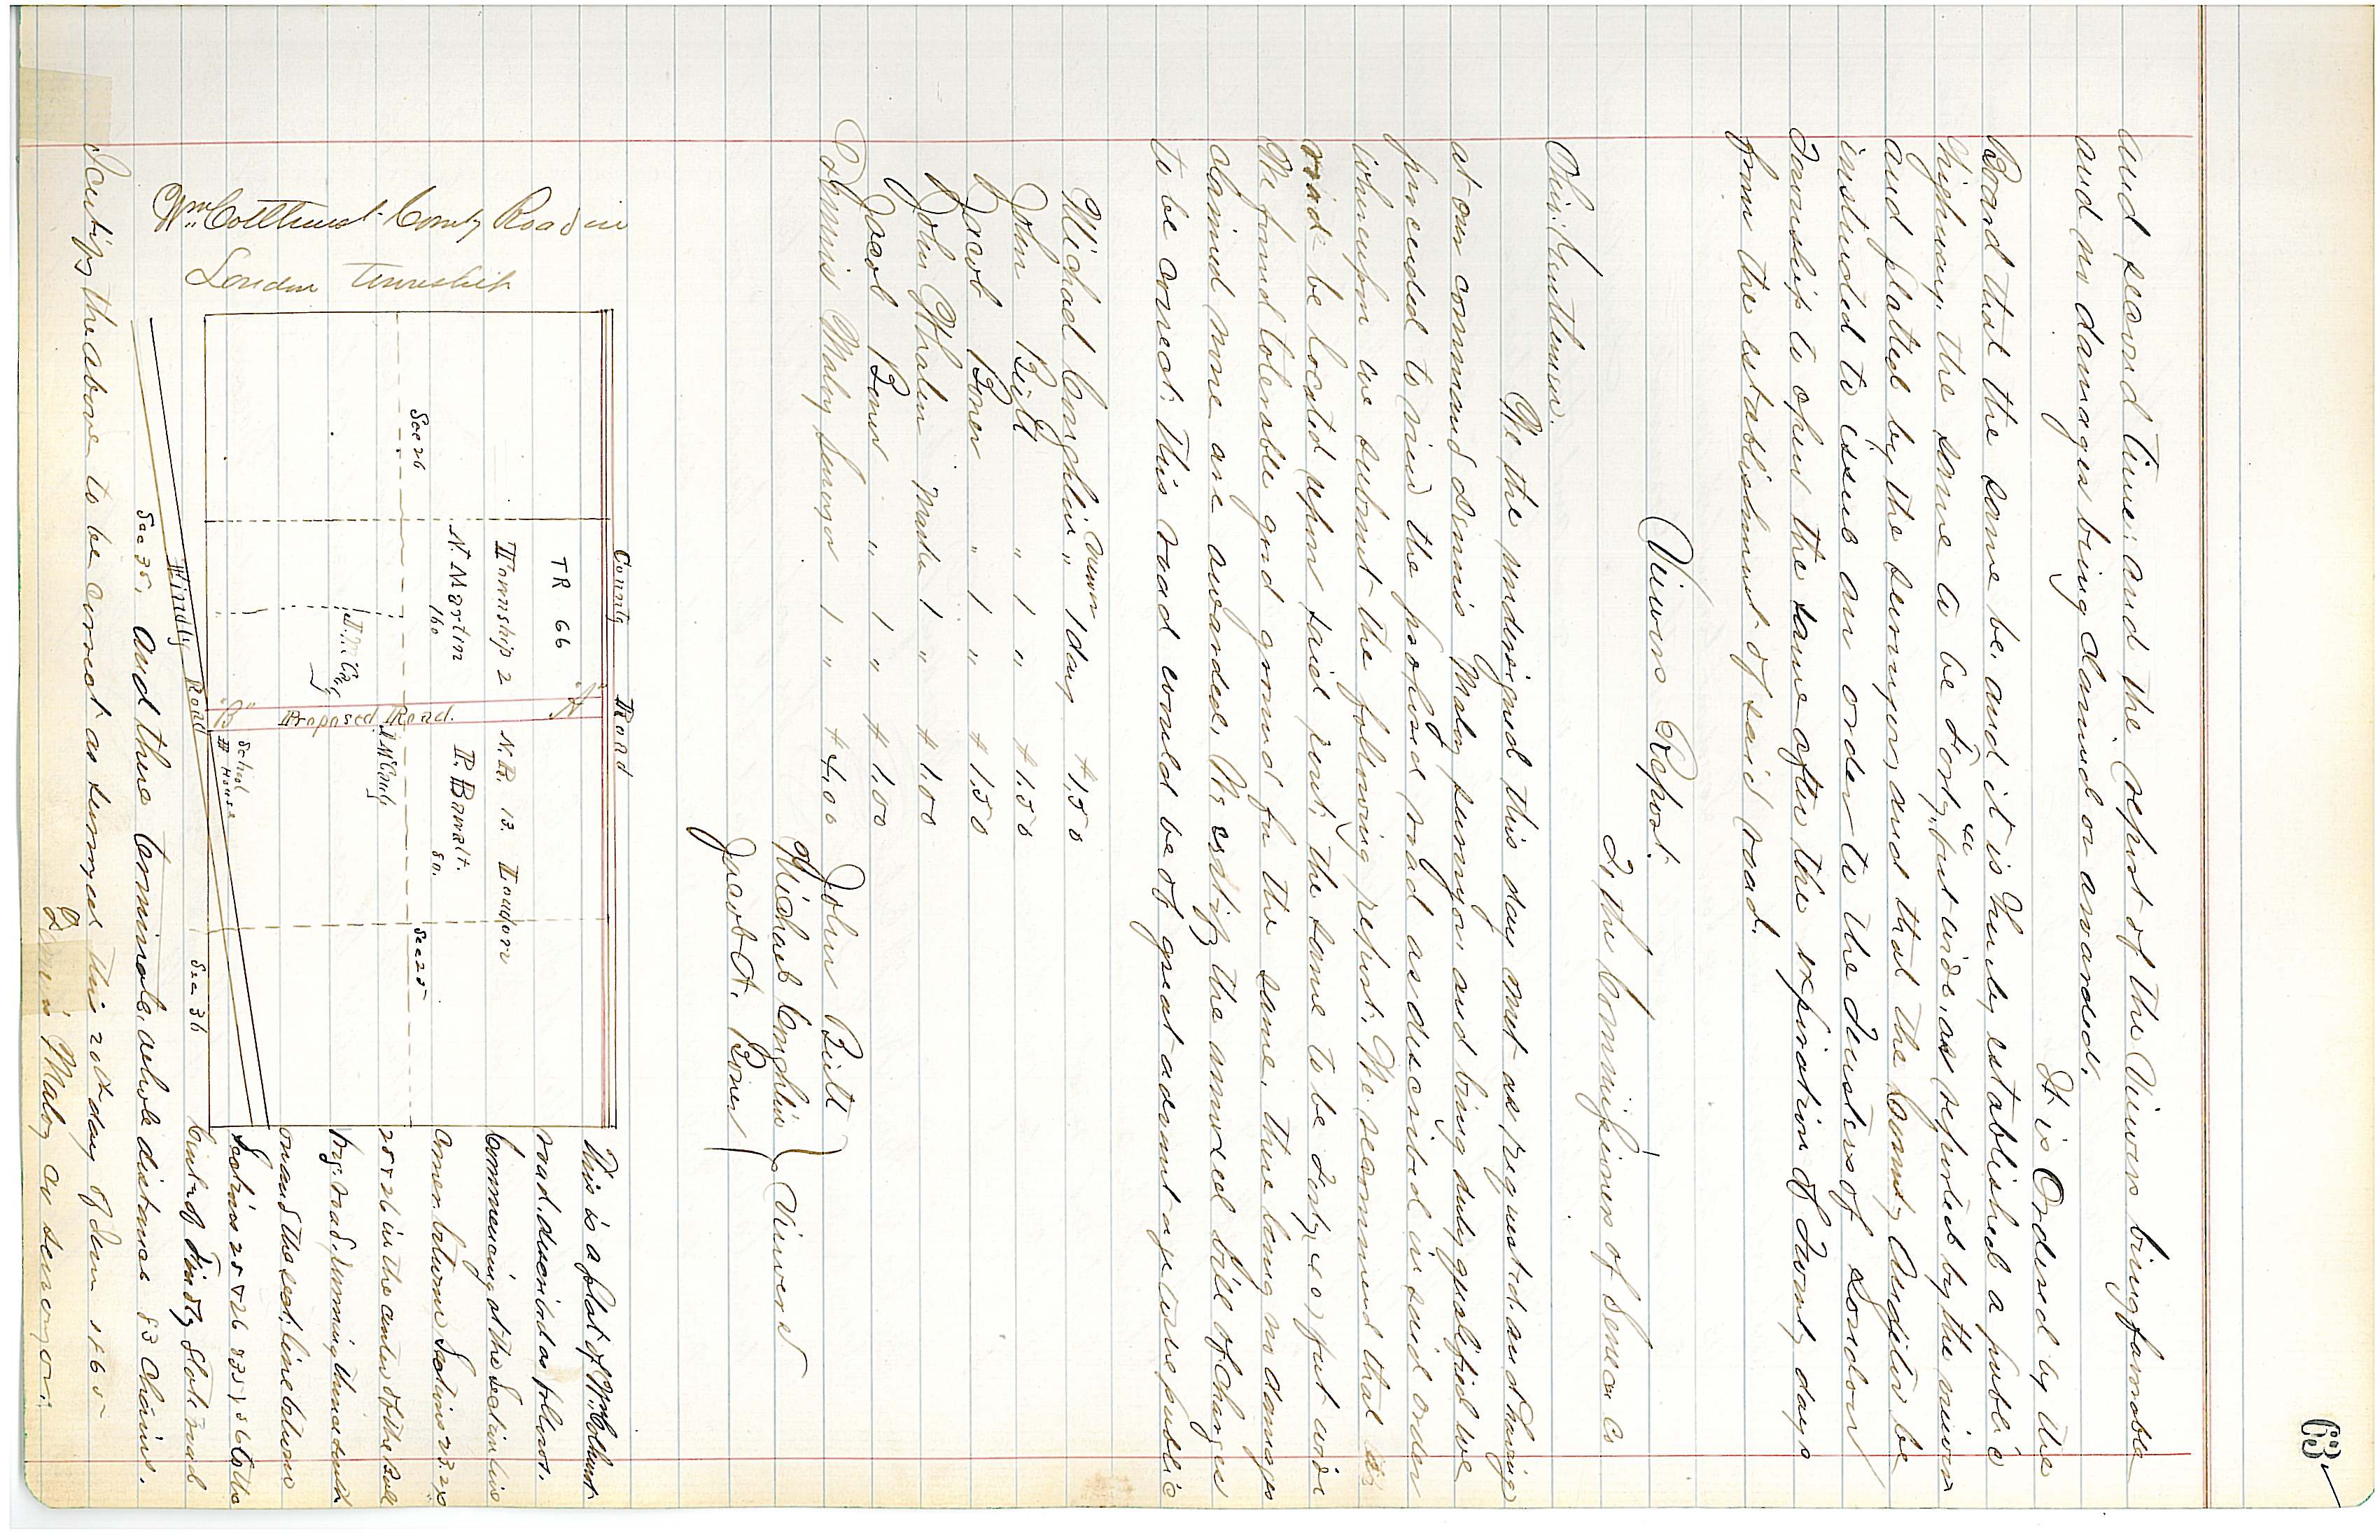 63
and second time: and the report of the Viewers being favorable
and no damages being claimed or awarded.
It is Ordered by the
Board that the same be, and it is hereby established a public
highway, the same to be Forty (40) feet wide, as reported by the viewers
and platted by the surveyor, and that the County Auditor be
instructed to issue an order to the Trustees of Loudon
Township to open the same after the expiration of Twenty days
from the establishment of said road.
Viewers Report.
To the Commissioners of Seneca Co
Ohio: Gentlemen.
We the undersigned this day met as requested and having
at our command Dennis Maloy surveyor and being duly qualified we
proceeded to view the proposed road as described in said order
whereupon we submit the following report. We recommend that
road be located upon said rout, the same to be Forty (40) feet wide
We found tolerable good ground for the same, there being no damages
claimed none are awarded, We certify the annexed bill of charges
to be correct: This road would be of great advantage to the public
Michael Coughlin, Viewer 1 day $1.50
John Bietl " 1 " $1.50
Jacob Boner " 1 " $1.50
John Whalen Marker 1 " $1.00
Jacob Boner " 1 " $1.00
Dennis Maloy Surveyor 1 " $4.00
John Bietl
Michael Coughlin } Viewers
Jacob A. Boner
Wm Colthurst County Road in
Loudon Township
County Road
TR 66
"A"
Township 2 N.R. 13. Loudon
N. Martin
160
P. Barnalt.
80.
Sec 26
Sec 25
McCauly
Proposed Road.
"B"
School
House
Findly Road
Sec 35.
Sec 36
This is a plat of Wm Colthurst
road, described as follows.
Commencing at the Section line
corner between Sections 23. 24
25 & 26 in the center of the
road, running thence south
on and the sect. line between
Sections 25 & 26 & 35 & 36 to the
Center of Findly State road
and there terminate, whole distance 83 Chains.
I certify the above to be correct as surveyed this 20th day of 1865
Dennis Maloy Co surveyor.